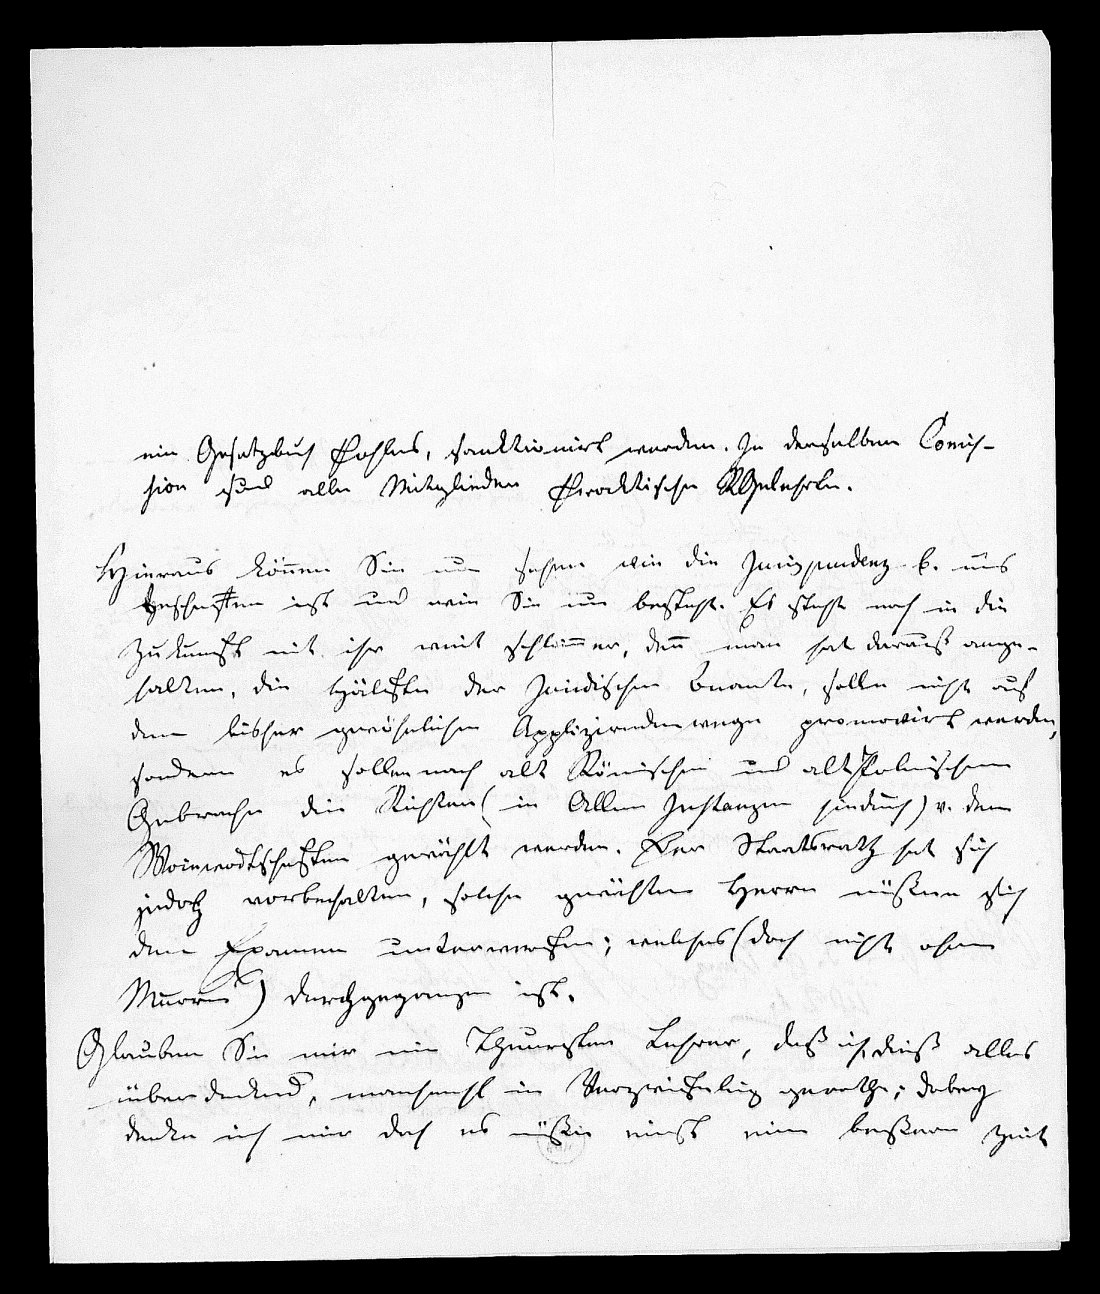 ein Gesetzbuch Pohlens, sanktionirt werden. In derselben Comis-
sion sind alle Mitglieder Praktische RGelehrte.
Hieraus können Sie nun sehen wie die Jurisprudenz b. uns
beschaffen ist und wie Sie nu besteht. Es steht noch in die
Zukunft mit ihr weit schlim̄er, den̄ man hat darauf ange-
halten, die Hälfte der Juridischen Beamte, solle nicht auf
dem bisher gewöhnlichen Applizirendenwege promovirt werden,
sondern es sollen nach alt Römischen und alt Polnischem
Gebrauche die Richter (in Allen Instanzen hindurch) v. den
Woiewodtschaften gewählt werden. Der Staatsrath hat sich
jedoch vorbehalten, solche gewählten Herrn müßten sich
dem Examen unterwerfen; welches (doch nicht ohne
) durchgegangen ist.
Glauben Sie mir mein Theuerster Lehrer, daß ich dieß alles
überdenkend, manchmal in Verzweifelung gerathe; dabey
denke ich mir doch es müße einst eine bessere Zeit